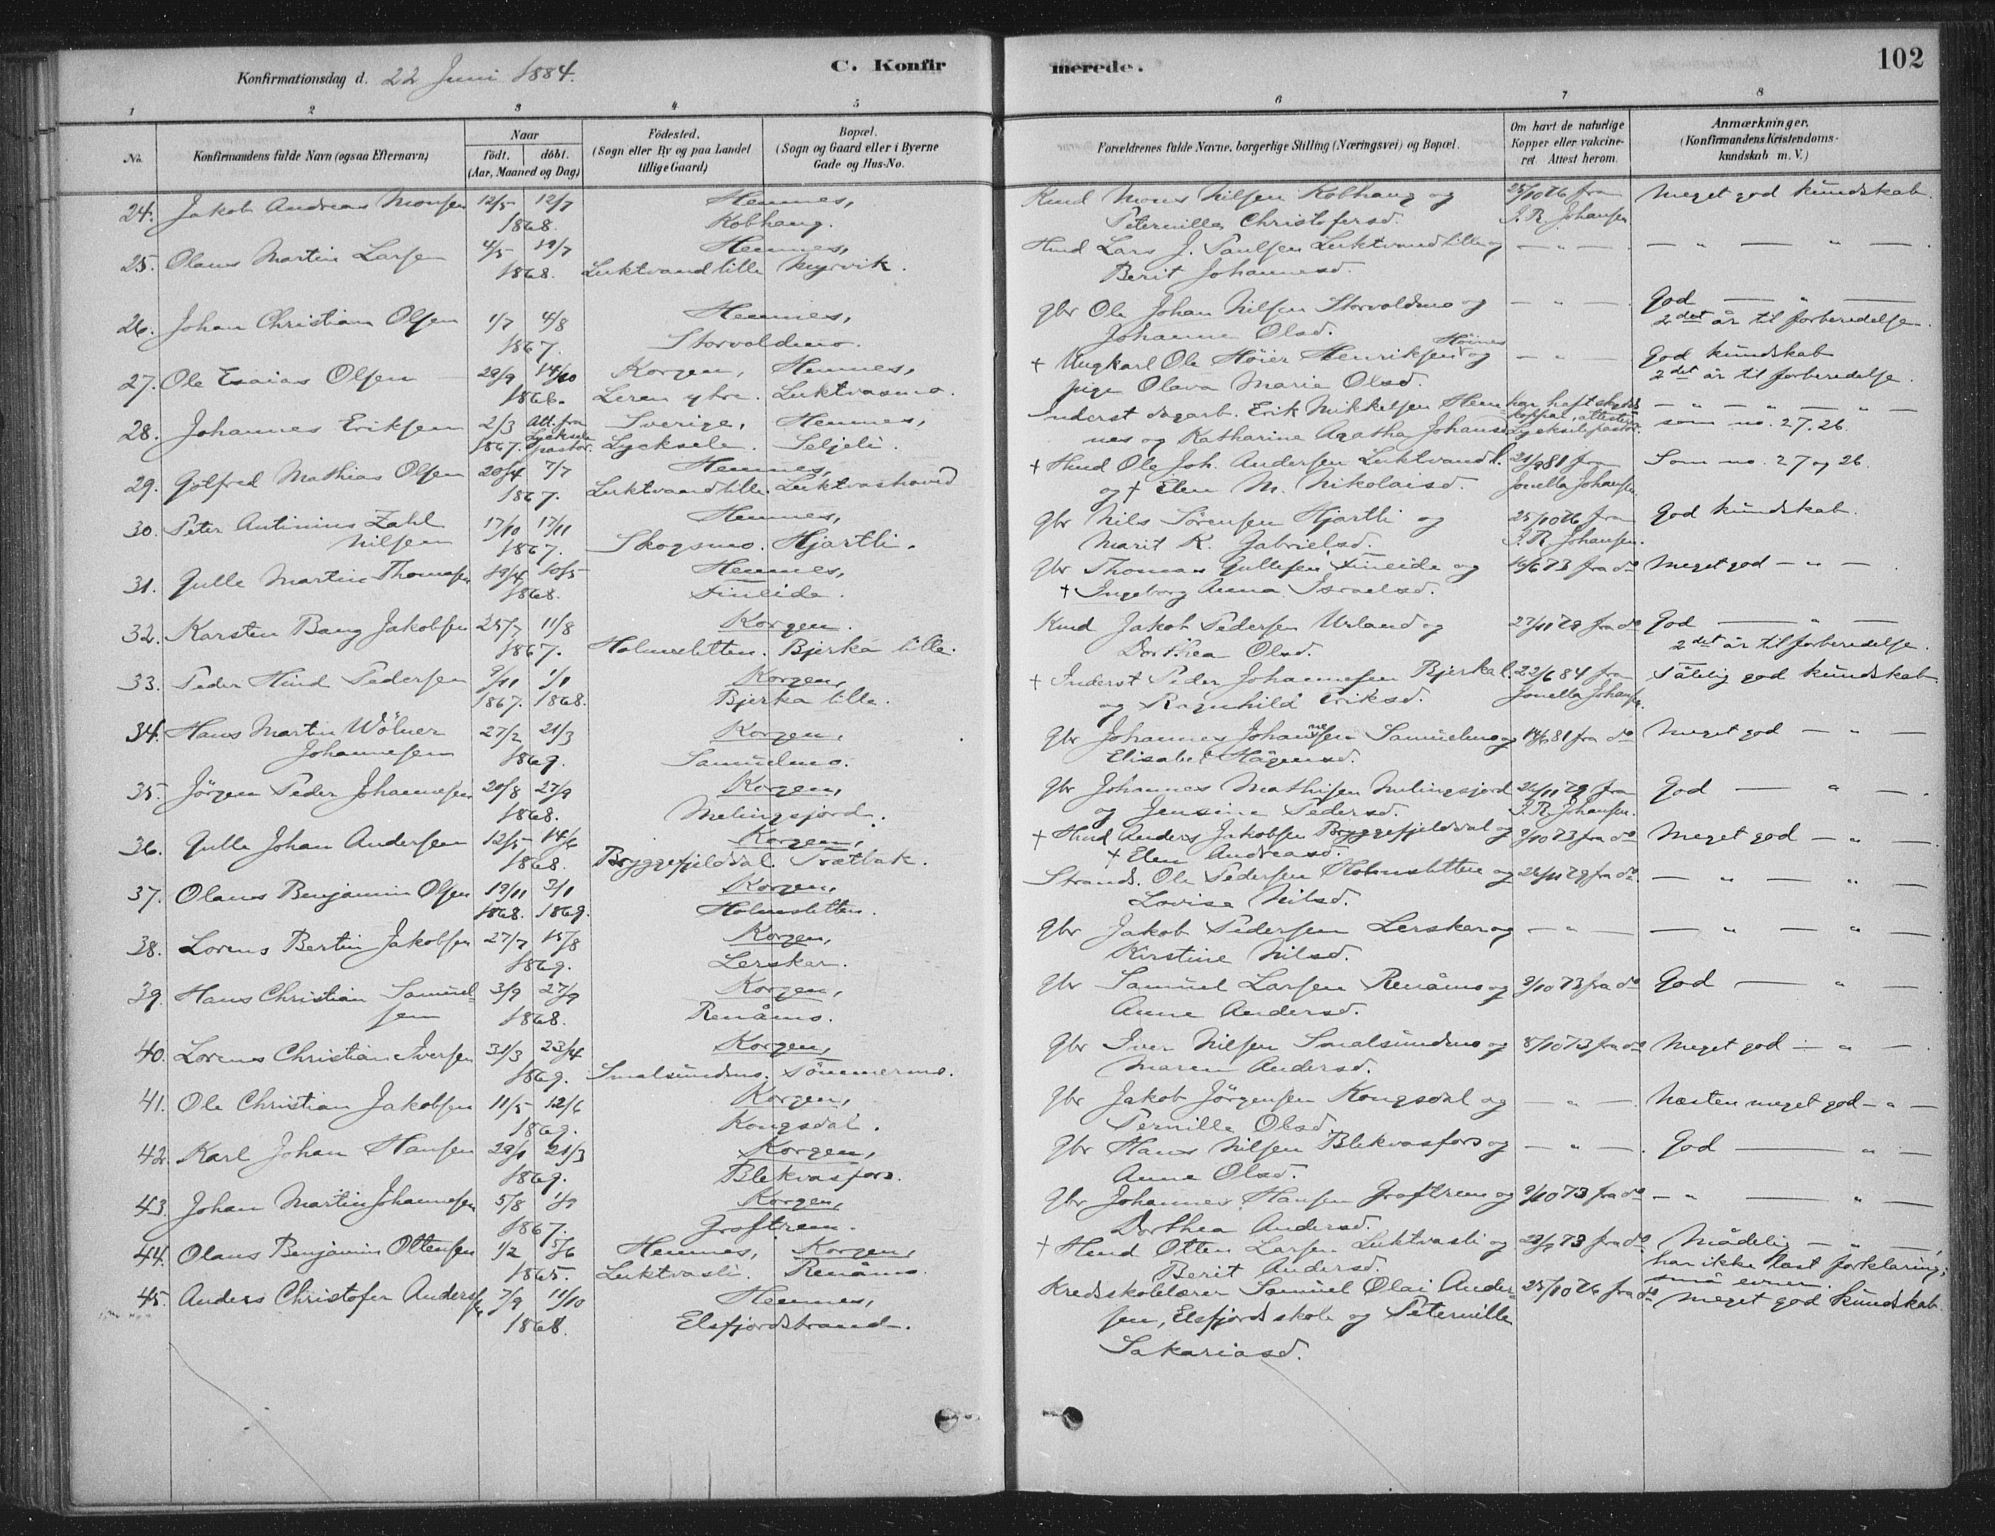 Konfirmationsdag d. 22 Juni 1884.
C. Konfir
merede.
102
1 2 3 4 5 6 7 8
No.
Konfirmandens fulde Navn (ogsaa Efternavn)
Naar
født. døbt.
(Aar, Maaned og Dag)
Fødested.
(Sogn eller By og paa Landet
tillige Gaard)
Bopæl.
(Sogn og Gaard eller i Byerne
Gade og Hus-No.
Forældrenes fulde Navne, borgerlige Stilling (Næringsvei) og Bopæl.
Om havt de naturlige
Kopper eller vakcine-
ret. Attest herom.
Anmærkninger.
(Konfirmandens Kristendoms-
kundskab m. V.)
24. Jakob Andreas Monsen 12/5 12/7 Hemnes, Kmd Mons Nilsen Kobhaug og 25/10 76 fra Meget god kundskab.
1868. Kobhaug. Peternilla Christofersd. J. R. Johansen
25. Olaus Martin Larsen 4/5 19/7 Hemnes, Hmd Lars J. Paulsen Luktvand lille og — " — — " — " — .
1868. Luktvand lille Myrvik. Berit Johannesd.
26. Johan Christian Olsen 1/7 4/8 Hemnes, Gbr Ole Johan Nilsen Storvoldmo og — " — God — " —
1867. Storvoldmo. Johanna Olsd. 2det år til forberedelse.
27. Ole Esaias Olsen 29/9 14/10 Korgen, Hemnes, + Ungkarl Ole Höier Henriksen Höines og — " — God kundskab
1866. Leren ytre. Luktvasmo. pige Olava Marie Olsd. 2det år til forberedelse.
28. Johannes Eriksen 2/3 Att. fra Sverige, Hemnes, Inderst dagarb. Erik Mikkelsen Hem- har haft skydds — " — " —
1867. Lycksele pastor. Lycksele. Seljeli. nes og Katharina Agatha Johans koppor, attesterer Lycksele pastor. som no. 27. 26.
29. Gotfred Mathias Olsen 20/4 7/7 Hemnes, + Hmd Ole Joh. Andersen Luktvand l. 21/9 81 fra Som no. 27 og 26.
1867. Luktvand lille. Luktvashoved og + Elen M. Nikolaisd. Jonetta Johansen
30. Peter Antinius Zahl 17/10 17/11 Hemnes, Gbr Nils Sörensen Hjartli og 25/10 76 fra God kundskab.
Nilsen 1867. Skogsmo. Hjartli. Marit K. Gabrielsd. J. R. Johansen.
31. Gulle Martin Thomasen 19/4 10/5 Hemnes, Gbr Thomas Gullesen Finneide og 16/6 73 fra do Meget god — " — .
1868. Finneide. + Ingeborg Anna Israelsd.
32. Karsten Bang Jakobsen 25/7 11/8 Korgen. Kmd Jakob Pedersen Urland og 27/11 79 fra do God — " —
1867. Holmsletten. Bjerka lille. Dorthea Olsd. 2det år til forberedelse.
33. Peder Hind Pedersen 9/11 1/1 Korgen, + Inderst Peder Johannesen Bjerka l. 22/6 84 fra Tålelig god kundskab.
1867. 1868. Bjerka lille. og Ragnhild Eriksd. Jonetta Johansen
34. Hans Martin Wölner 27/2 21/3 Korgen, Gbr Johannes Johannesen Samuelmo og 14/9 81 fra do Meget god — " —
Johannesen 1869. Samuelmo. Elisabet Hågensd.
35. Jörgen Peder Johannesen 20/8 27/9 Korgen, Gbr Johannes Mathisen Melingsjord 26/11 79 fra God — " — .
1868. Melingsjord. og Jensine Pedersd. J. R. Johansen.
36. Gulle Johan Andersen 12/5 14/6 Korgen, + Hmd Anders Jakobsen Bryggefjeldal og 9/10 73 fra do Meget god — " —
1868. Bryggefjeldal. Trætbak. + Elen Andreasd.
37. Olaus Benjamin Olsen 19/11 3/1 Korgen, Strands. Ole Pedersen Holmsletten og 26/11 79 fra do. — " — " —
1868. 1869. Holmsletten. Lovise Nilsd.
38. Lorens Bertin Jakobsen 27/7 15/8 Korgen, Gbr Jakob Pedersen Lerskar og — " — — " — " —
1869. Lerskar. Kirstine Nilsd.
39. Hans Christian Samuel- 3/9 27/9 Korgen, Gbr Samuel Larsen Renåmo og 9/10 73 fra do God — " —
sen 1868. Renåmo. Anne Andersd.
40. Lorents Christian Iversen 31/3 23/4 Korgen, Gbr Iver Nilsen Smalsundmo og 8/10 73 fra do Meget god — " — .
1869. Smalsundmo. Sömmermo. Maren Andersd.
41. Ole Christian Jakobsen 11/5 12/6 Korgen, Gbr Jakob Jörgensen Kongsdal og — " — Næsten meget god — " —
1869. Kongsdal. Pernille Olsd.
42. Karl Johan Hansen 29/1 21/3 Korgen, Gbr Hans Nilsen Blekvasfors og — " — . God — " —
1869. Blekvasfors. Anne Olsd.
43. Johan Martin Johannesen 5/8 1/9 Korgen, Gbr Johannes Hansen Groftrem og 9/10 73 fra do — " — " —
1867. Groftrem. Dorthea Andersd.
44. Olaus Benjamin Ottensen 1/2 5/6 Hemnes, Korgen, + Hmd Otten Larsen Luktvasli og 29/9 73 fra do Mådelig — " —
1865. Luktvasli. Renåmo. Berit Andersd. har ikke læst forklaring; små evner.
45. Anders Christofer Andersen 7/9 11/10 Hemnes, Kredsskolelærer Samuel Olai Ander- 25/10 76 fra do Meget god kundskab.
1868. Elsfjordstrand. sen, Elsfjords skole og Petternille
Sakariasd.